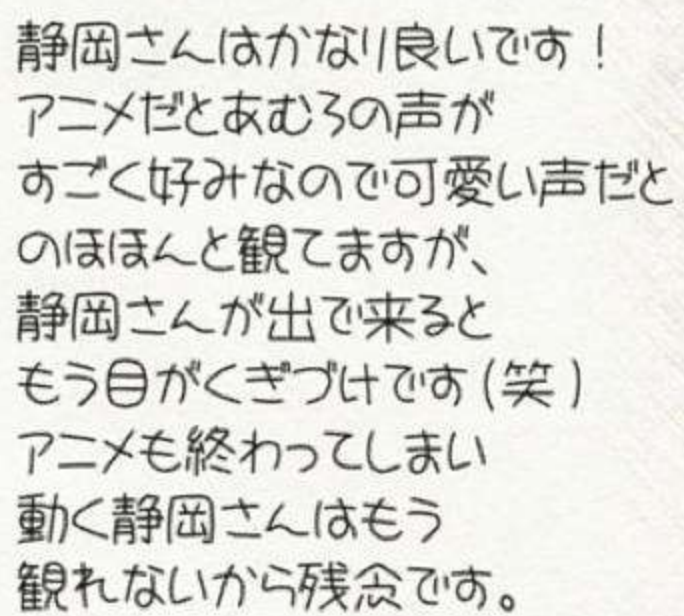 静岡さんはかなり良いです！
アニメだとあむろの声が
すごく好みなので可愛い声だと
のほほんと観てますが、
静岡さんが出で来ると
もう目がくぎづけです(笑)
アニメも終わってしまい
動く静岡さんはもう
観れないから残念です。